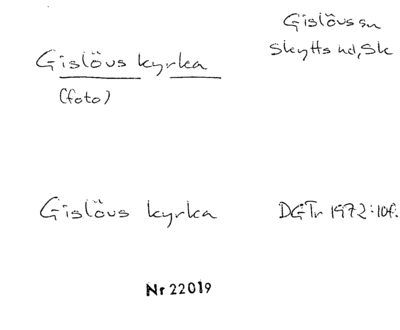 Gislövs sn
Skytts hd, Sk
Gislövs kyrka
(foto)
Gislövs kyrka DGTr 1972:10f.
Nr 22019